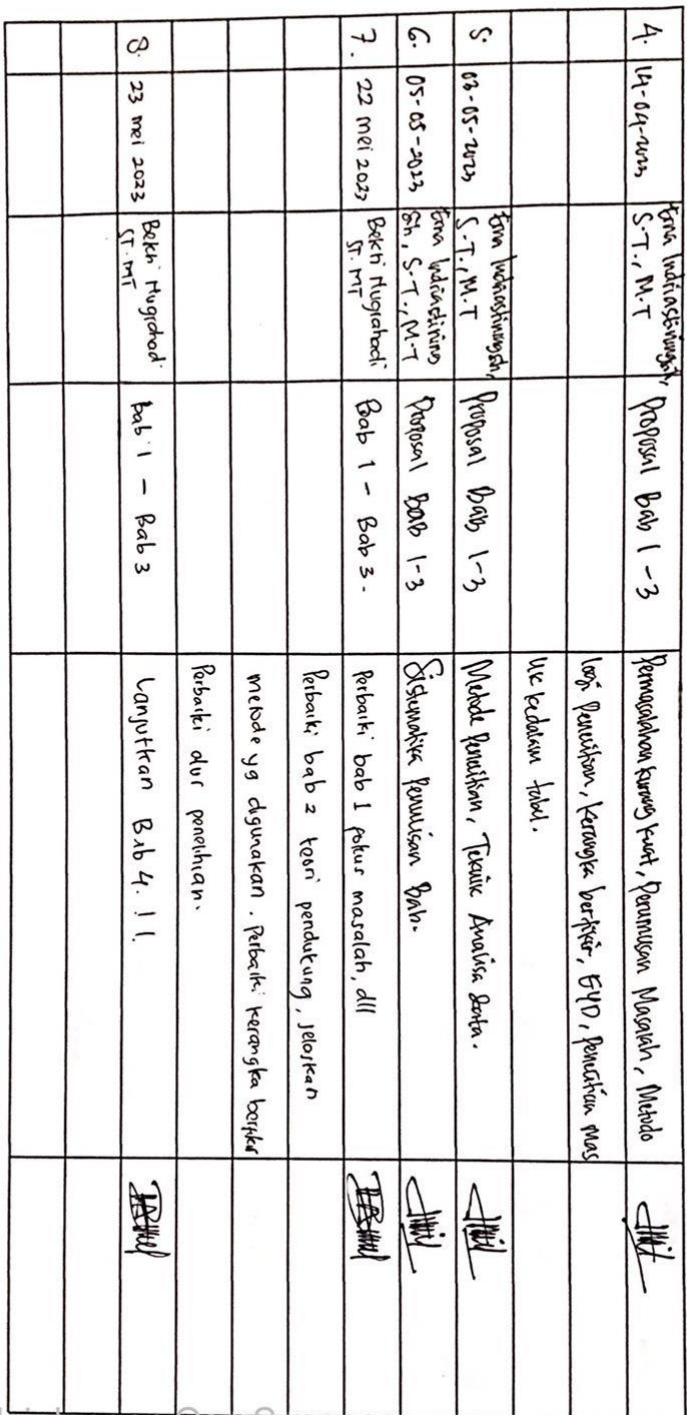 4. 14-04-2023 Erna Indriastiningsih, S.T., M.T Proposal Bab 1-3 Permasalahan kurang kuat, Perumusan Masalah, Metodo
logi Penelitian, Kerangka berfikir, EYD, Penelitian mas
uk kedalam tabel.
5. 03-05-2023 Erna Indriastiningsih, S.T., M.T Proposal Bab 1-3 Metode Penelitian, Teknik Analisa Data.
6. 05-05-2023 Erna Indriastining
sih, S.T., M.T Proposal Bab 1-3 Sistematika Penulisan Bab.
7. 22 mei 2023 Bekti Nugrahadi
ST. MT Bab 1 - Bab 3. Perbaiki bab 1 fokus masalah, dll
Perbaiki bab 2 teori pendukung, jelaskan
metode yg digunakan. Perbaiki kerangka berfikir
Perbaiki alur penelitian.
8. 23 mei 2023 Bekti Nugrahadi
ST. MT Bab 1 - Bab 3 Lanjutkan Bab 4. !!